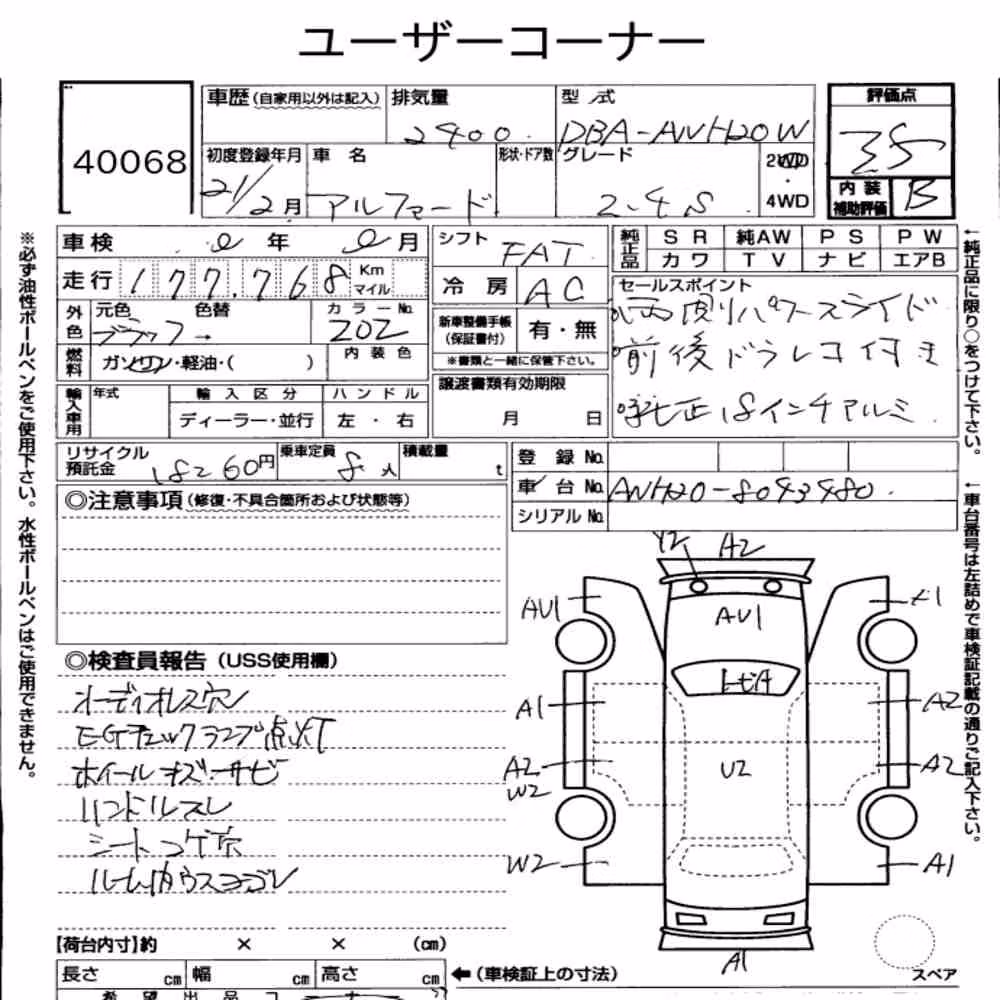 ユーザーコーナー
40068
車歴 (自家用以外は記入) 排気量 2400 型式 DBA-ANH20W
評価点 35
初度登録年月 21/2月 車名 アルファード 形状・ドア数 グレード 2.4S 2WD・4WD
内装補助評価 B
車検 0年 0月
走行 177,768 Km マイル
外色 元色 ブラック → 色替 カラーNo. 202
燃料 ガソリン・軽油・( ) 内装色
輸入車用 年式 輸入区分 ディーラー・並行 ハンドル 左・右
シフト FAT
冷房 AC
新車整備手帳 (保証書付) 有・無
※書類と一緒に保管下さい。
譲渡書類有効期限
月 日
純正品 SR 純AW PS PW
カワ TV ナビ エアB
セールスポイント
両側パワースライド
前後ドラレコ付き
純正18インチアルミ
リサイクル預託金 18260円 乗車定員 8人 積載量 t
登録No.
車台No. ANH20-8043480
シリアルNo.
◎注意事項 (修復・不具合箇所および状態等)
◎検査員報告 (USS使用欄)
オーディオレス穴
EGチェックランプ点灯
ホイールキズ・サビ
ハンドルスレ
シートコゲ穴
ルーム内ウスヨゴレ
Y2
A2
AU1
AU1
A1
トビA
A1
A2
A2
W2
U2
A2
W2
A1
A1
スペア
【荷台内寸】約 × × (cm)
長さ cm 幅 cm 高さ cm ←(車検証上の寸法)
※必ず油性ボールペンをご使用下さい。水性ボールペンはご使用できません。
←純正品に限り○をつけて下さい。
←車台番号は左詰めで車検証記載の通りご記入下さい。